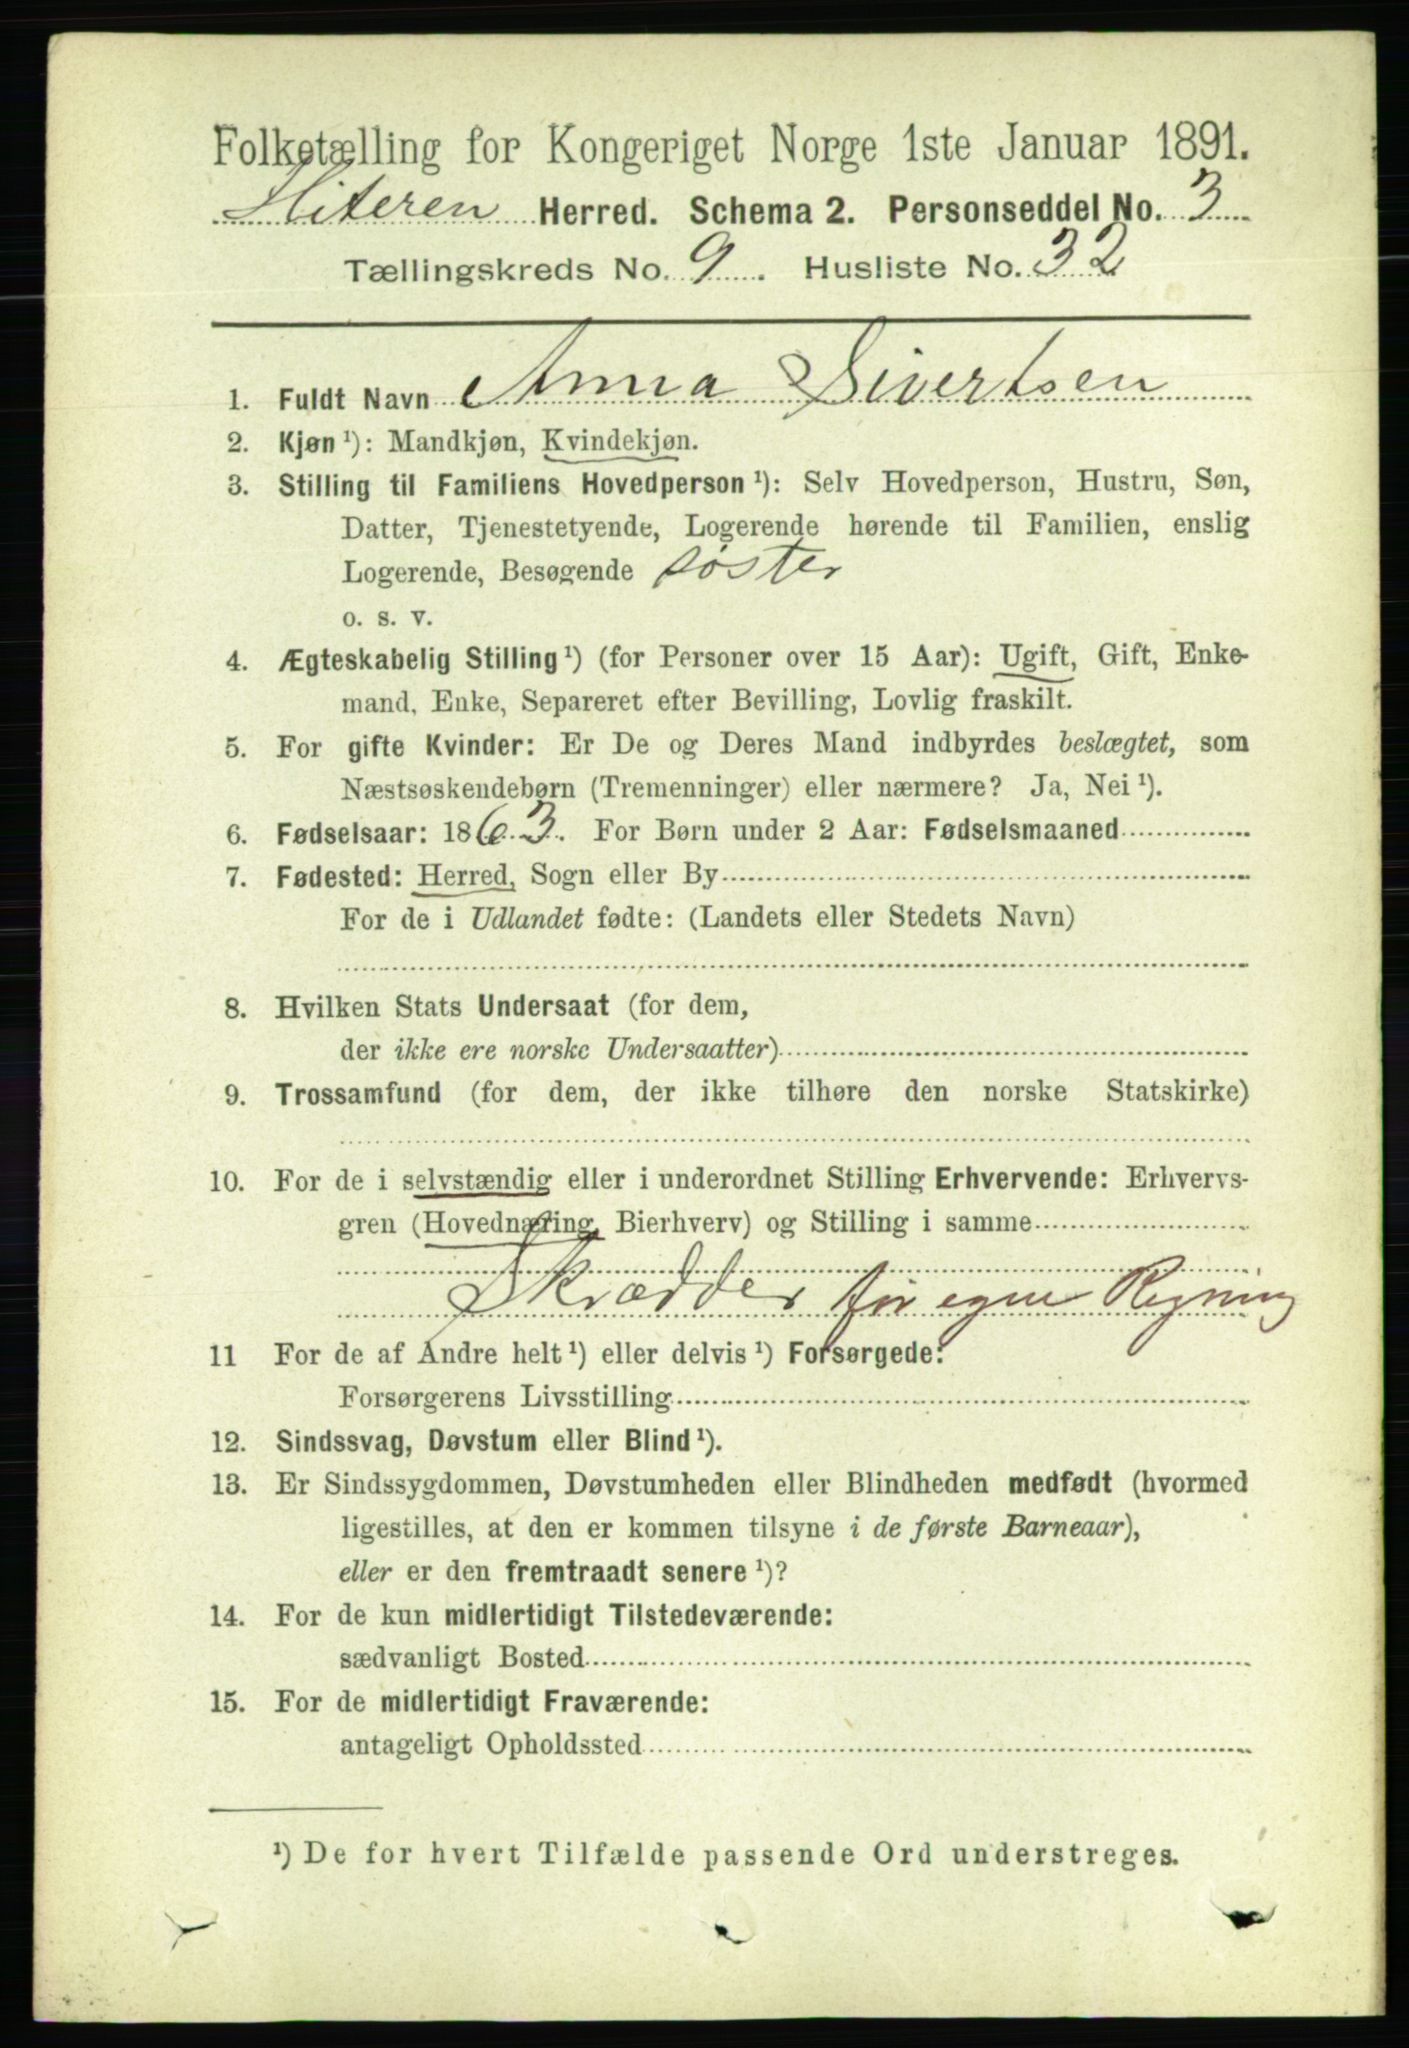 Folketælling for Kongeriget Norge 1ste Januar 1891.
Hiteren Herred. Schema 2. Personseddel No. 3
Tællingskreds No. 9. Husliste No. 32
1. Fuldt Navn Anna Sivertsen
2. Kjøn ¹): Mandkjøn, Kvindekjøn.
3. Stilling til Familiens Hovedperson ¹): Selv Hovedperson, Hustru, Søn,
Datter, Tjenestetyende, Logerende hørende til Familien, enslig
Logerende, Besøgende søster
o. s. v.
4. Ægteskabelig Stilling ¹) (for Personer over 15 Aar): Ugift, Gift, Enke-
mand, Enke, Separeret efter Bevilling, Lovlig fraskilt.
5. For gifte Kvinder: Er De og Deres Mand indbyrdes beslægtet, som
Næstsøskendebørn (Tremenninger) eller nærmere? Ja, Nei ¹).
6. Fødselsaar: 1863. For Børn under 2 Aar: Fødselsmaaned
7. Fødested: Herred, Sogn eller By
For de i Udlandet fødte: (Landets eller Stedets Navn)
8. Hvilken Stats Undersaat (for dem,
der ikke ere norske Undersaatter)
9. Trossamfund (for dem, der ikke tilhøre den norske Statskirke)
10. For de i selvstændig eller i underordnet Stilling Erhvervende: Erhvervs-
gren (Hovednæring, Bierhverv) og Stilling i samme
Skrædder for egne Regning
11 For de af Andre helt ¹) eller delvis ¹) Forsørgede:
Forsørgerens Livsstilling
12. Sindssvag, Døvstum eller Blind ¹).
13. Er Sindssygdommen, Døvstumheden eller Blindheden medfødt (hvormed
ligestilles, at den er kommen tilsyne i de første Barneaar),
eller er den fremtraadt senere ¹)?
14. For de kun midlertidigt Tilstedeværende:
sædvanligt Bosted
15. For de midlertidigt Fraværende:
antageligt Opholdssted
¹) De for hvert Tilfælde passende Ord understreges.